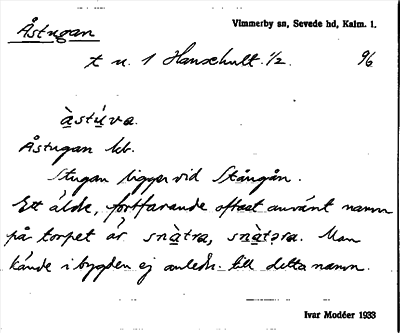 Åstugan
Vimmerby sn, Sevede hd, Kalm. l.
t u. 1 Hanshult. 1/2. 9/6
àstúva.
Åstugan kb.
Stugan ligger vid Stångån.
Ett äldre, fortfarande oftast använt namn
på torpet är snàtra, snàtəra. Man
kände i bygden ej anledn. till detta namn.
Ivar Modéer 1933